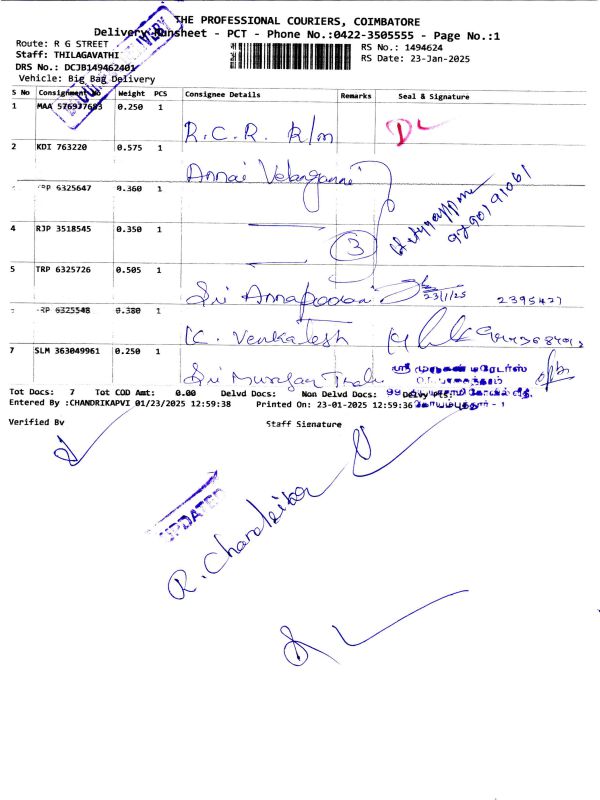 THE PROFESSIONAL COURIERS, COIMBATORE
Delivery Runsheet - PCT - Phone No.:0422-3505555 - Page No.:1
Route: R G STREET
RS No.: 1494624
Staff: THILAGAVATHI
RS Date: 23-Jan-2025
DRS No.: DCJB149462401
Vehicle: Big Bag Delivery
DELIVERY
S No Consignment No Weight PCS Consignee Details Remarks Seal & Signature
1 MAA 576937683 0.250 1
R.C.R. k/m DL
2 KDI 763220 0.575 1
Annai Velanganni
RP 6325647 0.360 1
9790191061
4 RJP 3518545 0.350 1
3
5 TRP 6325726 0.505 1
Sri Annapoorani 23/1/25 2395427
RP 6325548 0.380 1
K. Venkatesh
7 SLM 363049961 0.250 1
Sri Murugan Trade
ஸ்ரீ முருகன் டிரேடர்ஸ்
கோயம்புத்தூர் - 1
Tot Docs: 7 Tot COD Amt: 0.00 Delvd Docs: Non Delvd Docs: Delvy Pts:
Entered By :CHANDRIKAPVI 01/23/2025 12:59:38 Printed On: 23-01-2025 12:59:36
Verified By Staff Signature
UPDATED
R. Chandrika